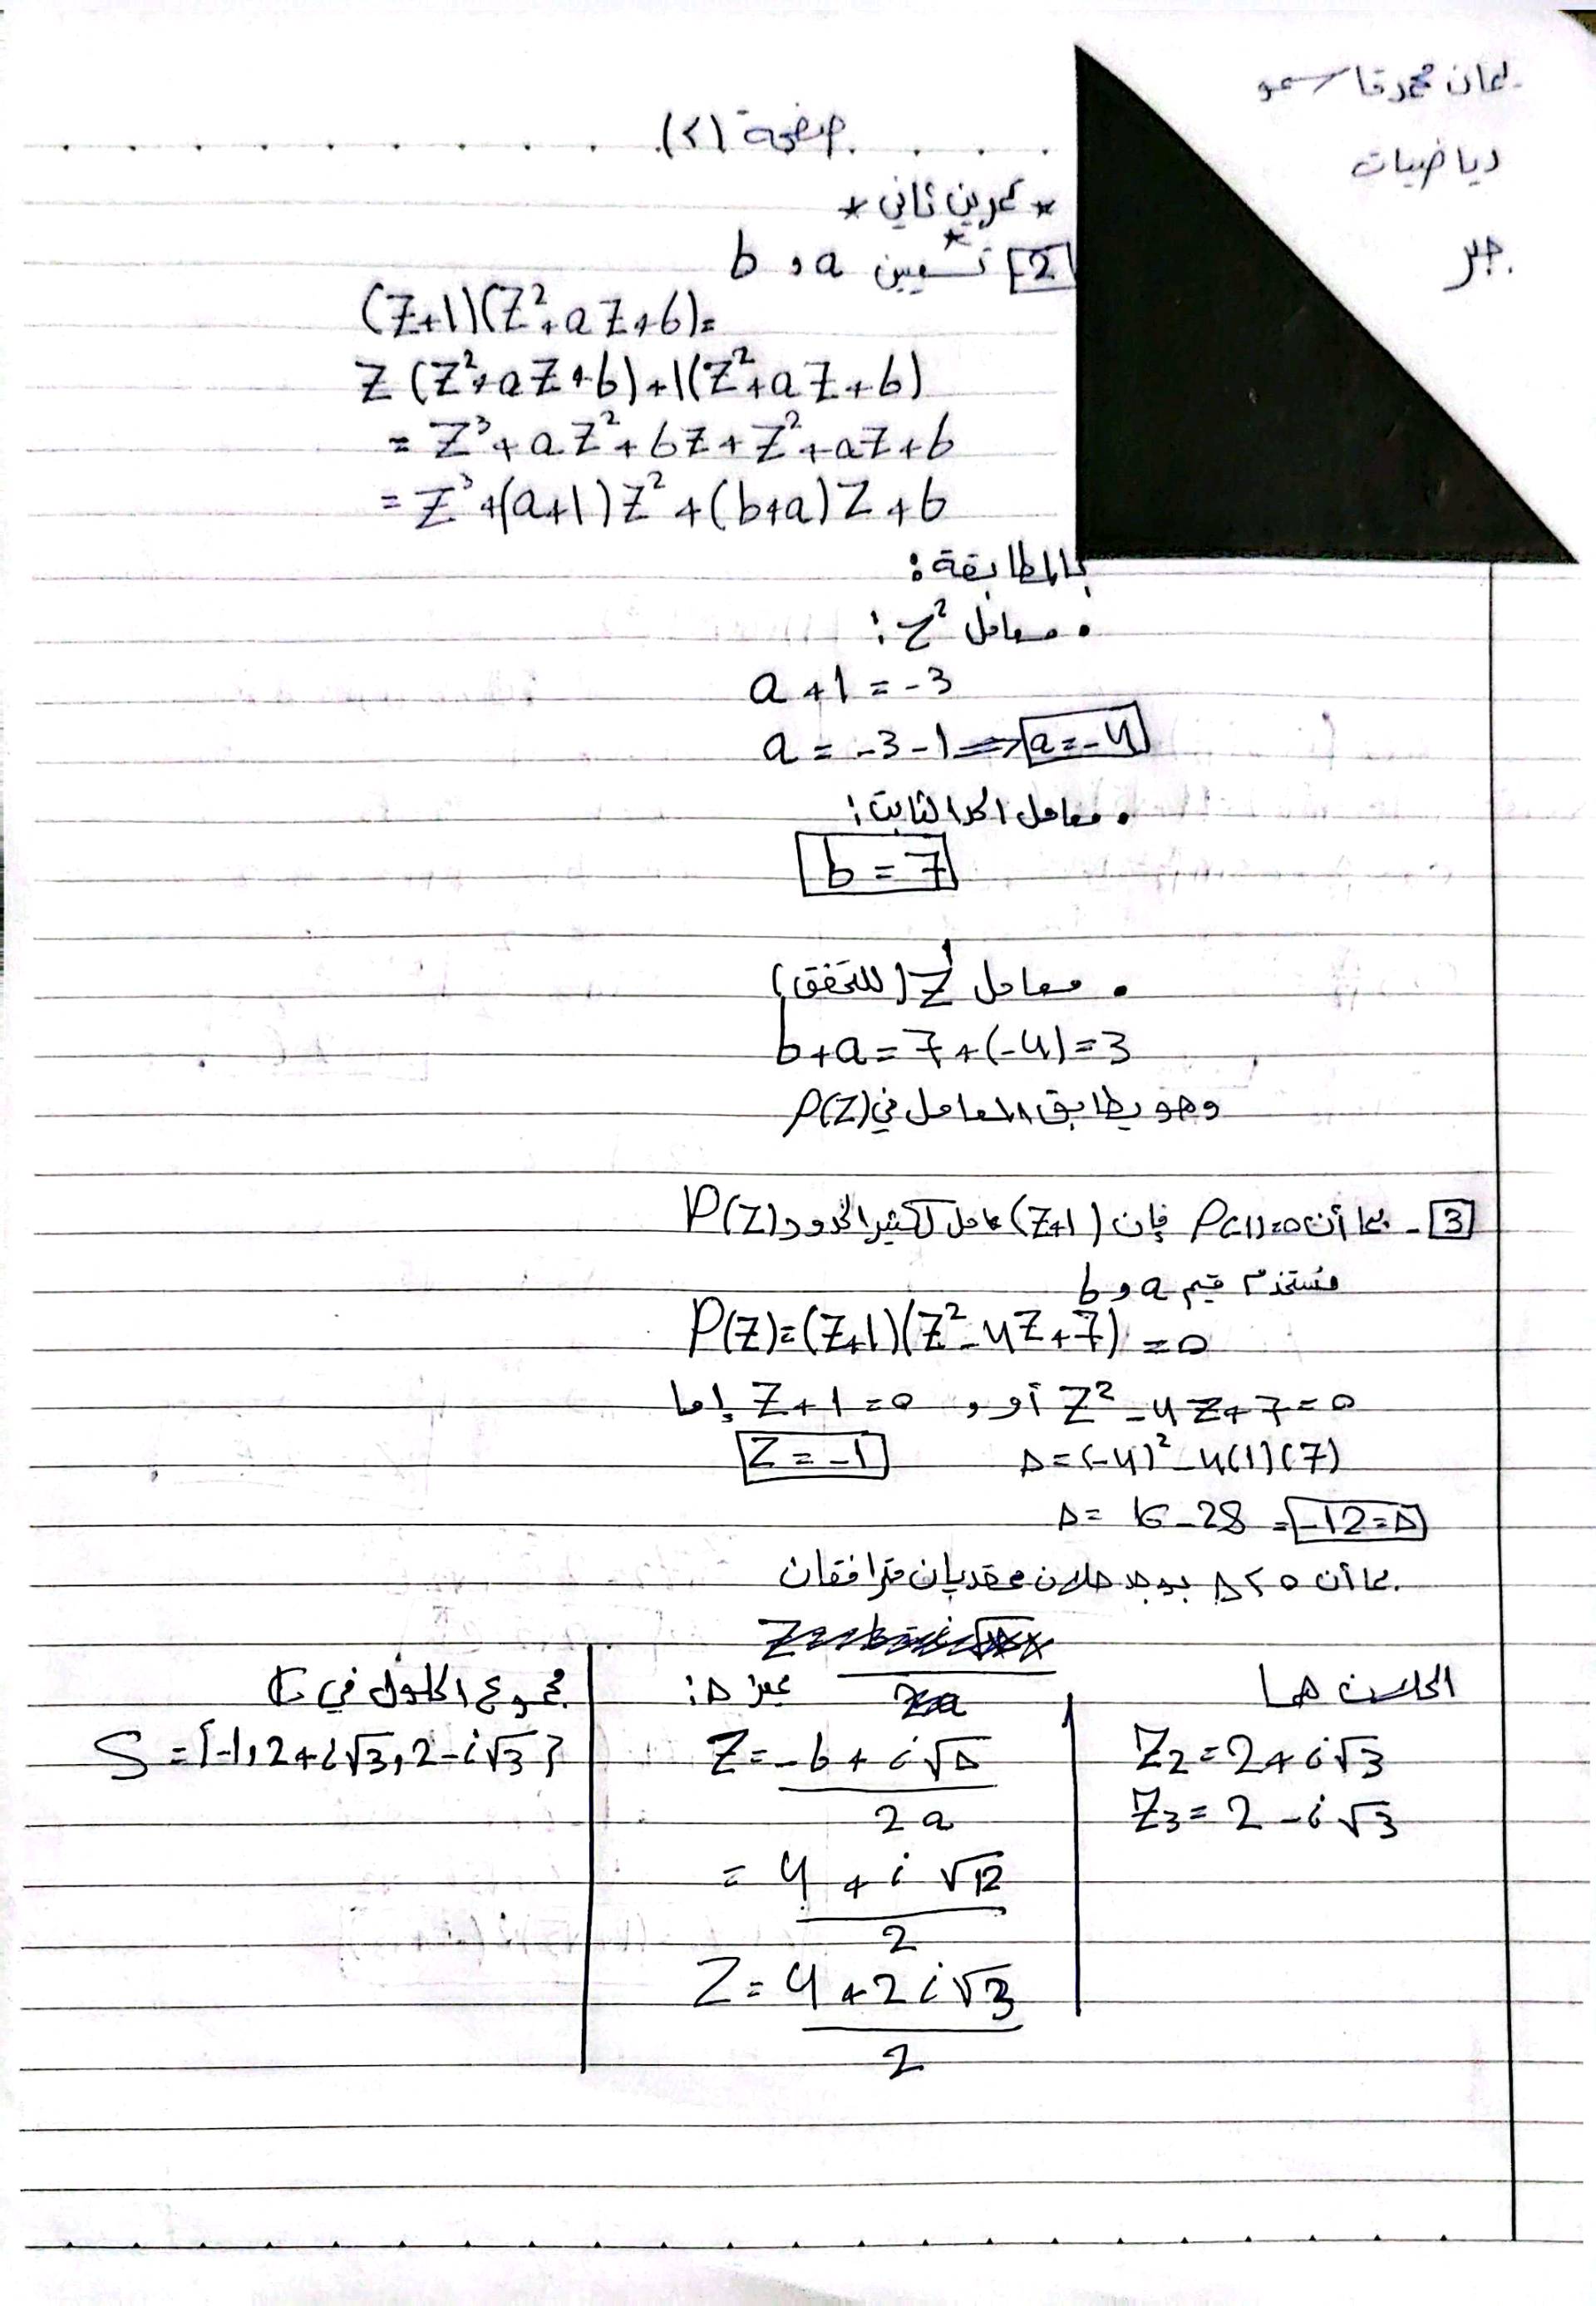 محمد قاسمو
رياضيات
صفحة (٢)
* تمرين ثاني *
2 - تعيين a و b
(Z+1)(Z²+aZ+b)=
Z(Z²+aZ+b)+1(Z²+aZ+b)
= Z³+aZ²+bZ+Z²+aZ+b
= Z³+(a+1)Z²+(b+a)Z+b
بالمطابقة:
• معامل Z²:
a+1=-3
a=-3-1 ⟹ a=-4
• معامل الحد الثابت:
b=7
• معامل Z (للتحقق)
b+a=7+(-4)=3
وهو يطابق المعامل في P(Z)
3 - بما أن P(-1)=0 فإن (Z+1) عامل لكثير الحدود P(Z)
نستخدم قيم a و b
P(Z)=(Z+1)(Z²-4Z+7)=0
إما Z+1=0 , أو Z²-4Z+7=0
Z=-1 Δ=(-4)²-4(1)(7)
Δ=16-28=-12=Δ
بما أن Δ<0 يوجد حلان عقديان مترافقان
الحلان هما
Z2=2+i√3
Z3=2-i√3
مميز Δ:
Z=-b+i√Δ
2a
=4+i√12
2
Z=4+2i√3
2
مجموع الحلول في C
S={-1,2+i√3,2-i√3}